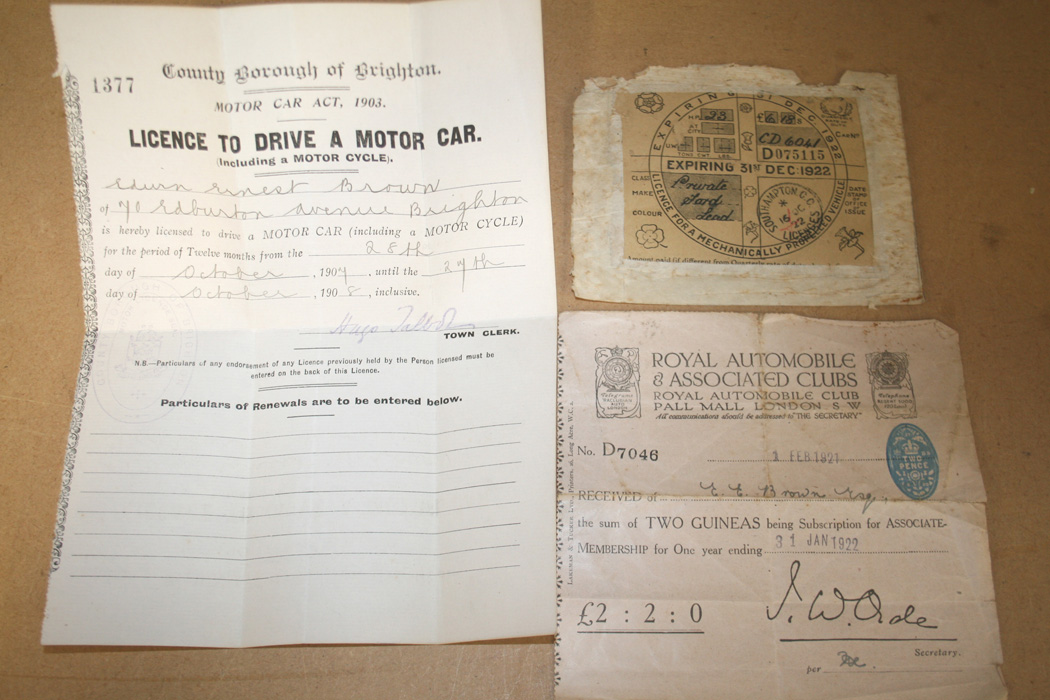 1377
County Borough of Brighton.
MOTOR CAR ACT, 1903.
LICENCE TO DRIVE A MOTOR CAR.
(Including a MOTOR CYCLE).
Edwin Ernest Brown
of 70 Edburton Avenue Brighton
is hereby licensed to drive a MOTOR CAR (including a MOTOR CYCLE)
for the period of Twelve months from the 28th
day of October, 1907, until the 27th
day of October, 1908, inclusive.
Hugo Talbot
TOWN CLERK.
N.B.—Particulars of any endorsement of any Licence previously held by the Person licensed must be
entered on the back of this Licence.
Particulars of Renewals are to be entered below.
EXPIRING 31 DEC 1922
H.P. 23
£6
CD 6041
CAR No
D075115
CWT LBS
EXPIRING 31ST DEC: 1922
CLASS Private
MAKE Ford
COLOUR Lead
SOUTHAMPTON C.C.
LICENCES
DATE STAMP OF OFFICE OF ISSUE
LICENCE FOR A MECHANICALLY PROPELLED VEHICLE
Amount paid (if different from Quarterly rate
ROYAL AUTOMOBILE
& ASSOCIATED CLUBS
ROYAL AUTOMOBILE CLUB
PALL MALL LONDON S W
All communications should be addressed to "THE SECRETARY"
Telegrams
Telephone
No. D7046
1 FEB 1921
TWO PENCE
RECEIVED of E. E. Brown Esq.
the sum of TWO GUINEAS being Subscription for ASSOCIATE-
MEMBERSHIP for One year ending 31 JAN 1922
£2 : 2 : 0
J. W. Orde
Secretary.
per